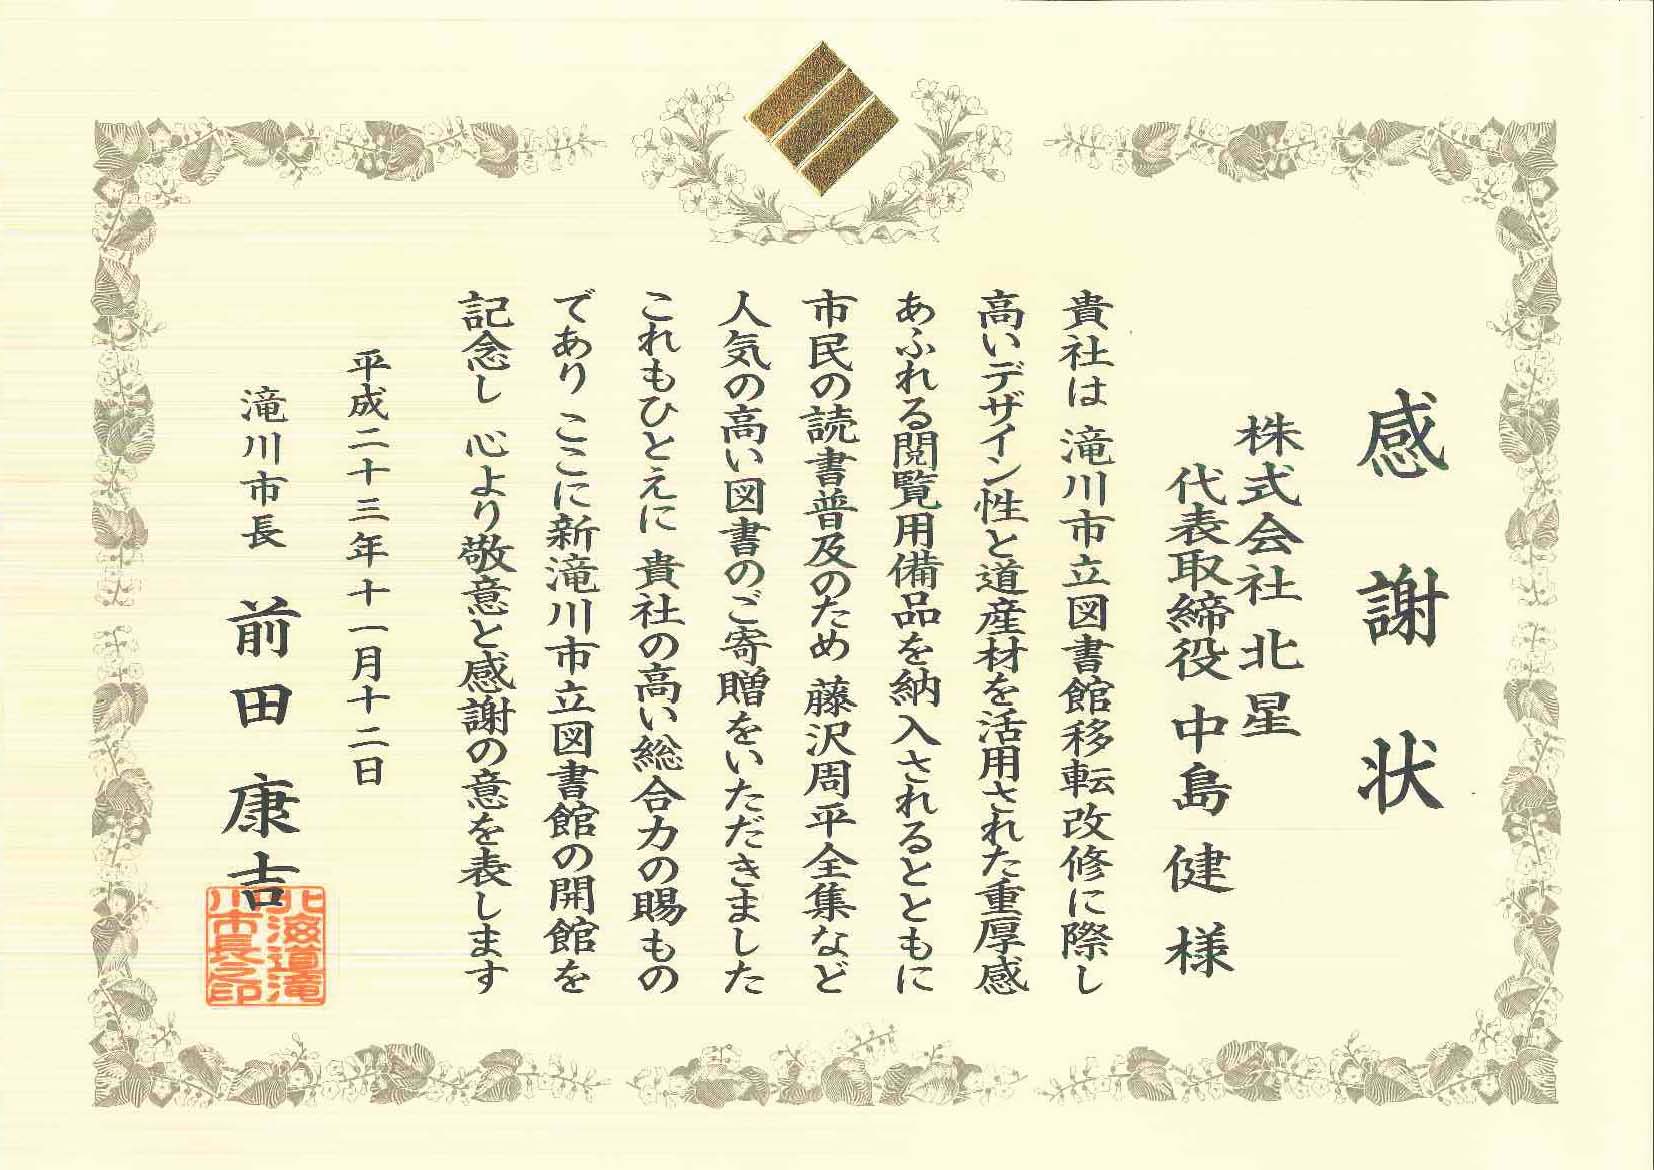 感謝状
株式会社北星
代表取締役 中島健様
貴社は 滝川市立図書館移転改修に際し
高いデザイン性と道産材を活用された重厚感
あふれる閲覧用備品を納入されるとともに
市民の読書普及のため 藤沢周平全集など
人気の高い図書のご寄贈をいただきました
これもひとえに 貴社の高い総合力の賜もの
であり ここに新滝川市立図書館の開館を
記念し 心より敬意と感謝の意を表します
平成二十三年十一月十二日
滝川市長 前田康吉
北海道滝
川市長之印